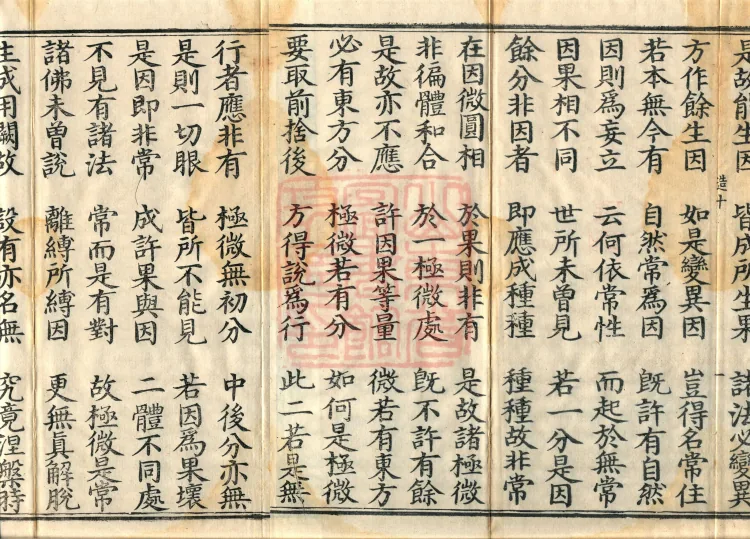 是故能生因 皆成所生果 諸法必變異
造十 一
方作餘生因 如是變異因 豈得名常住
若本無今有 自然常爲因 旣許有自然
因則爲妄立 云何依常性 而起於無常
因果相不同 世所未曾見 若一分是因
餘分非因者 即應成種種 種種故非常
在因微圓相 於果則非有 是故諸極微
非徧體和合 於一極微處 旣不許有餘
是故亦不應 許因果等量 微若有東方
必有東方分 極微若有分 如何是極微
要取前捨後 方得說爲行 此二若是無
行者應非有 極微無初分 中後分亦無
是則一切眼 皆所不能見 若因爲果壞
是因即非常 成許果與因 二體不同處
不見有諸法 常而是有對 故極微是常
諸佛未曾說 離縛所縛因 更無眞解脫
生成用闕故 設有亦名無 究竟涅槃時